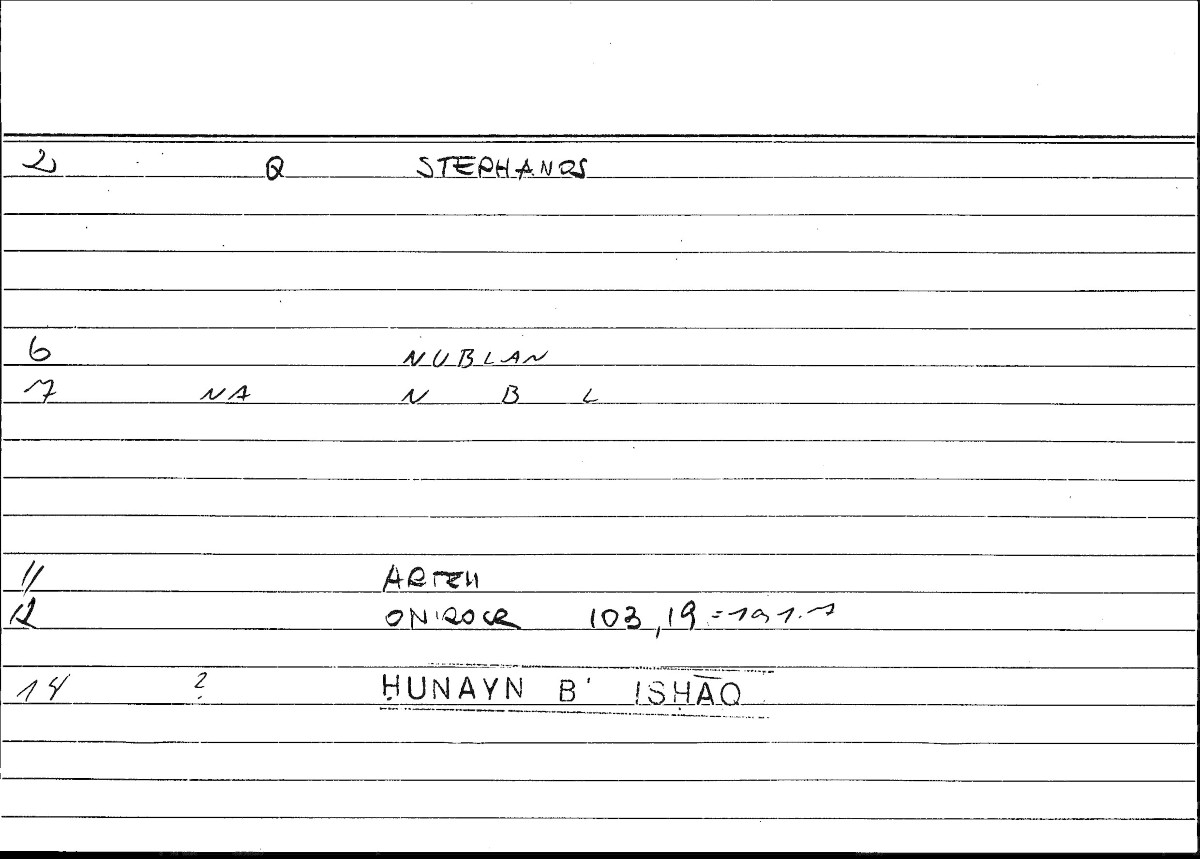 2 Q STEPHANOS
6 NUBLAN
7 NA N B L
11 ARTEM
12 ONIROCR 103,19 = 191.7
14 ? ḤUNAYN B' ISḤĀQ